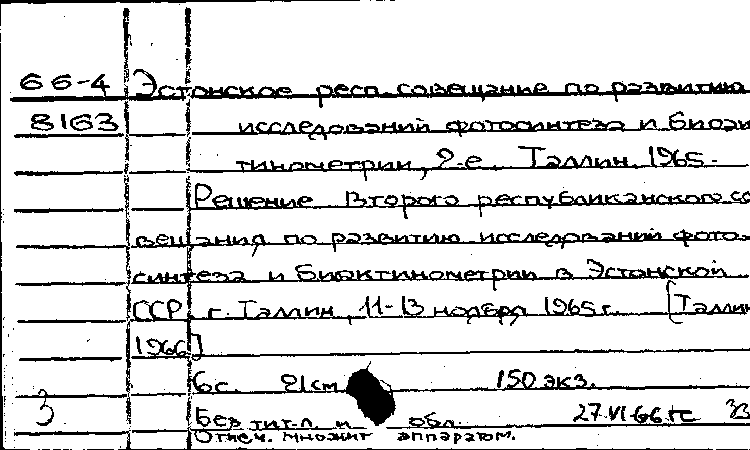 66-4 Эстонское респ. совещание по развитию
8163 исследований фотосинтеза и биоак
тинометрии, 2-е. Таллин. 1965.
Решение Второго республиканского со
вещания по развитию исследований фото-
синтеза и биоактинометрии в Эстонской
ССР г. Таллин, 11-13 ноября 1965 г. [Таллин
1966]
6 с. 21 см 150 экз.
3 Без тит. л. и обл. 27.VI.66 гс
Отпеч. множит аппаратом.